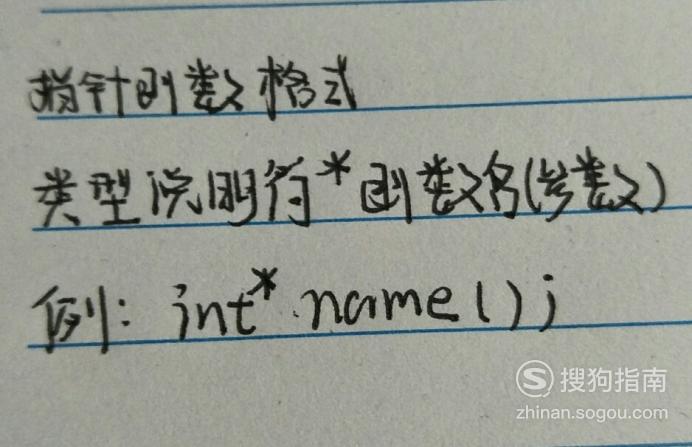 指针函数格式
类型说明符*函数名(参数)
例: int* name();
搜狗指南
zhinan.sogou.com